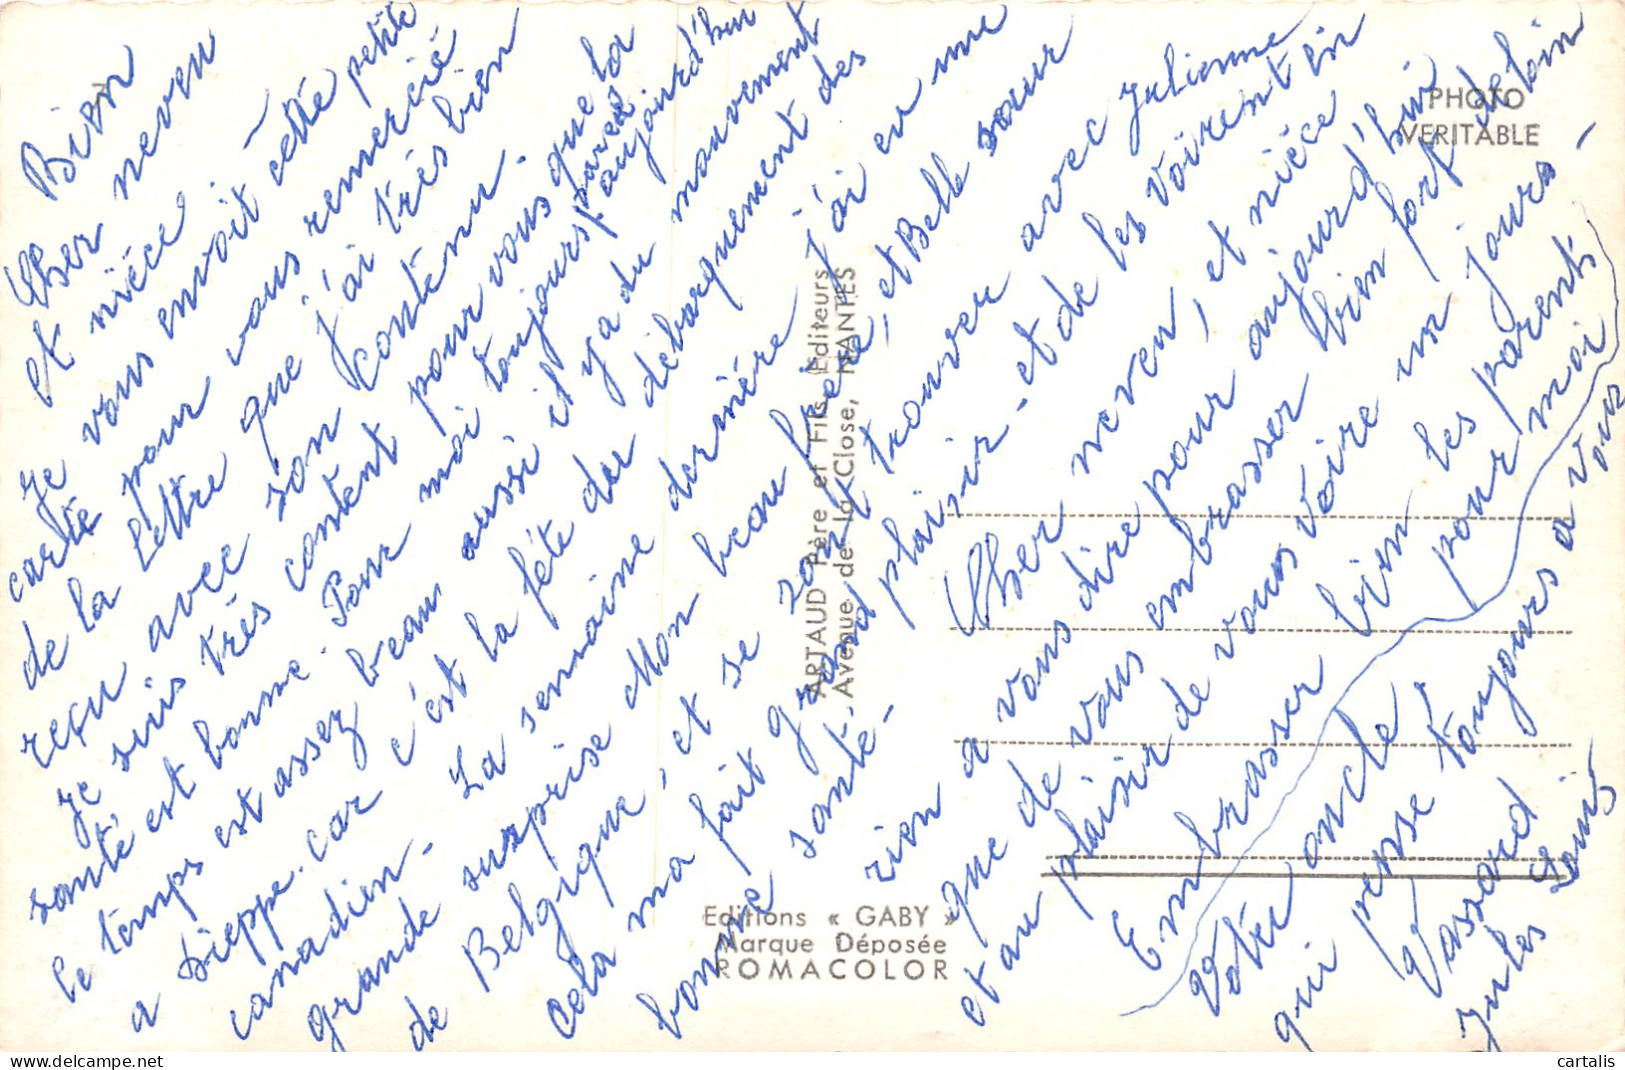 Bien
Cher neveu
et nièce.
Je vous envoit cette petite
carte pour vous remercié
de la lettre que j'ai très bien
reçu avec son contenu.
Je suis très content pour vous que la
santé est bonne. Pour moi toujours pareil
le temps est assez beau aussi aujourd'hui
a Dieppe. car c'est la fête du il y a du mouvement
canadien - débarquement des
grande surprise La semaine dernière j'ai eu une
de Belgique, Mon beau frère, et Belle sœur
cela ma fait et se sont trouver avec Julienne
bonne santé - grand plaisir - et de les voirent en
Cher neveu, et nièce
rien a vous dire pour aujourd'hui
que de vous embrasser bien fort de loin
et au plaisir de vous voire un jours -
Embrasser bien les parents
Votre oncle pour moi
qui pense toujours a vous
Vassard
Jules Louis
PHOTO
VERITABLE
ARTAUD Père et Fils, Editeurs
Avenue de la Close, NANTES
Editions « GABY »
Marque Déposée
ROMACOLOR
cartalis
www.delcampe.net